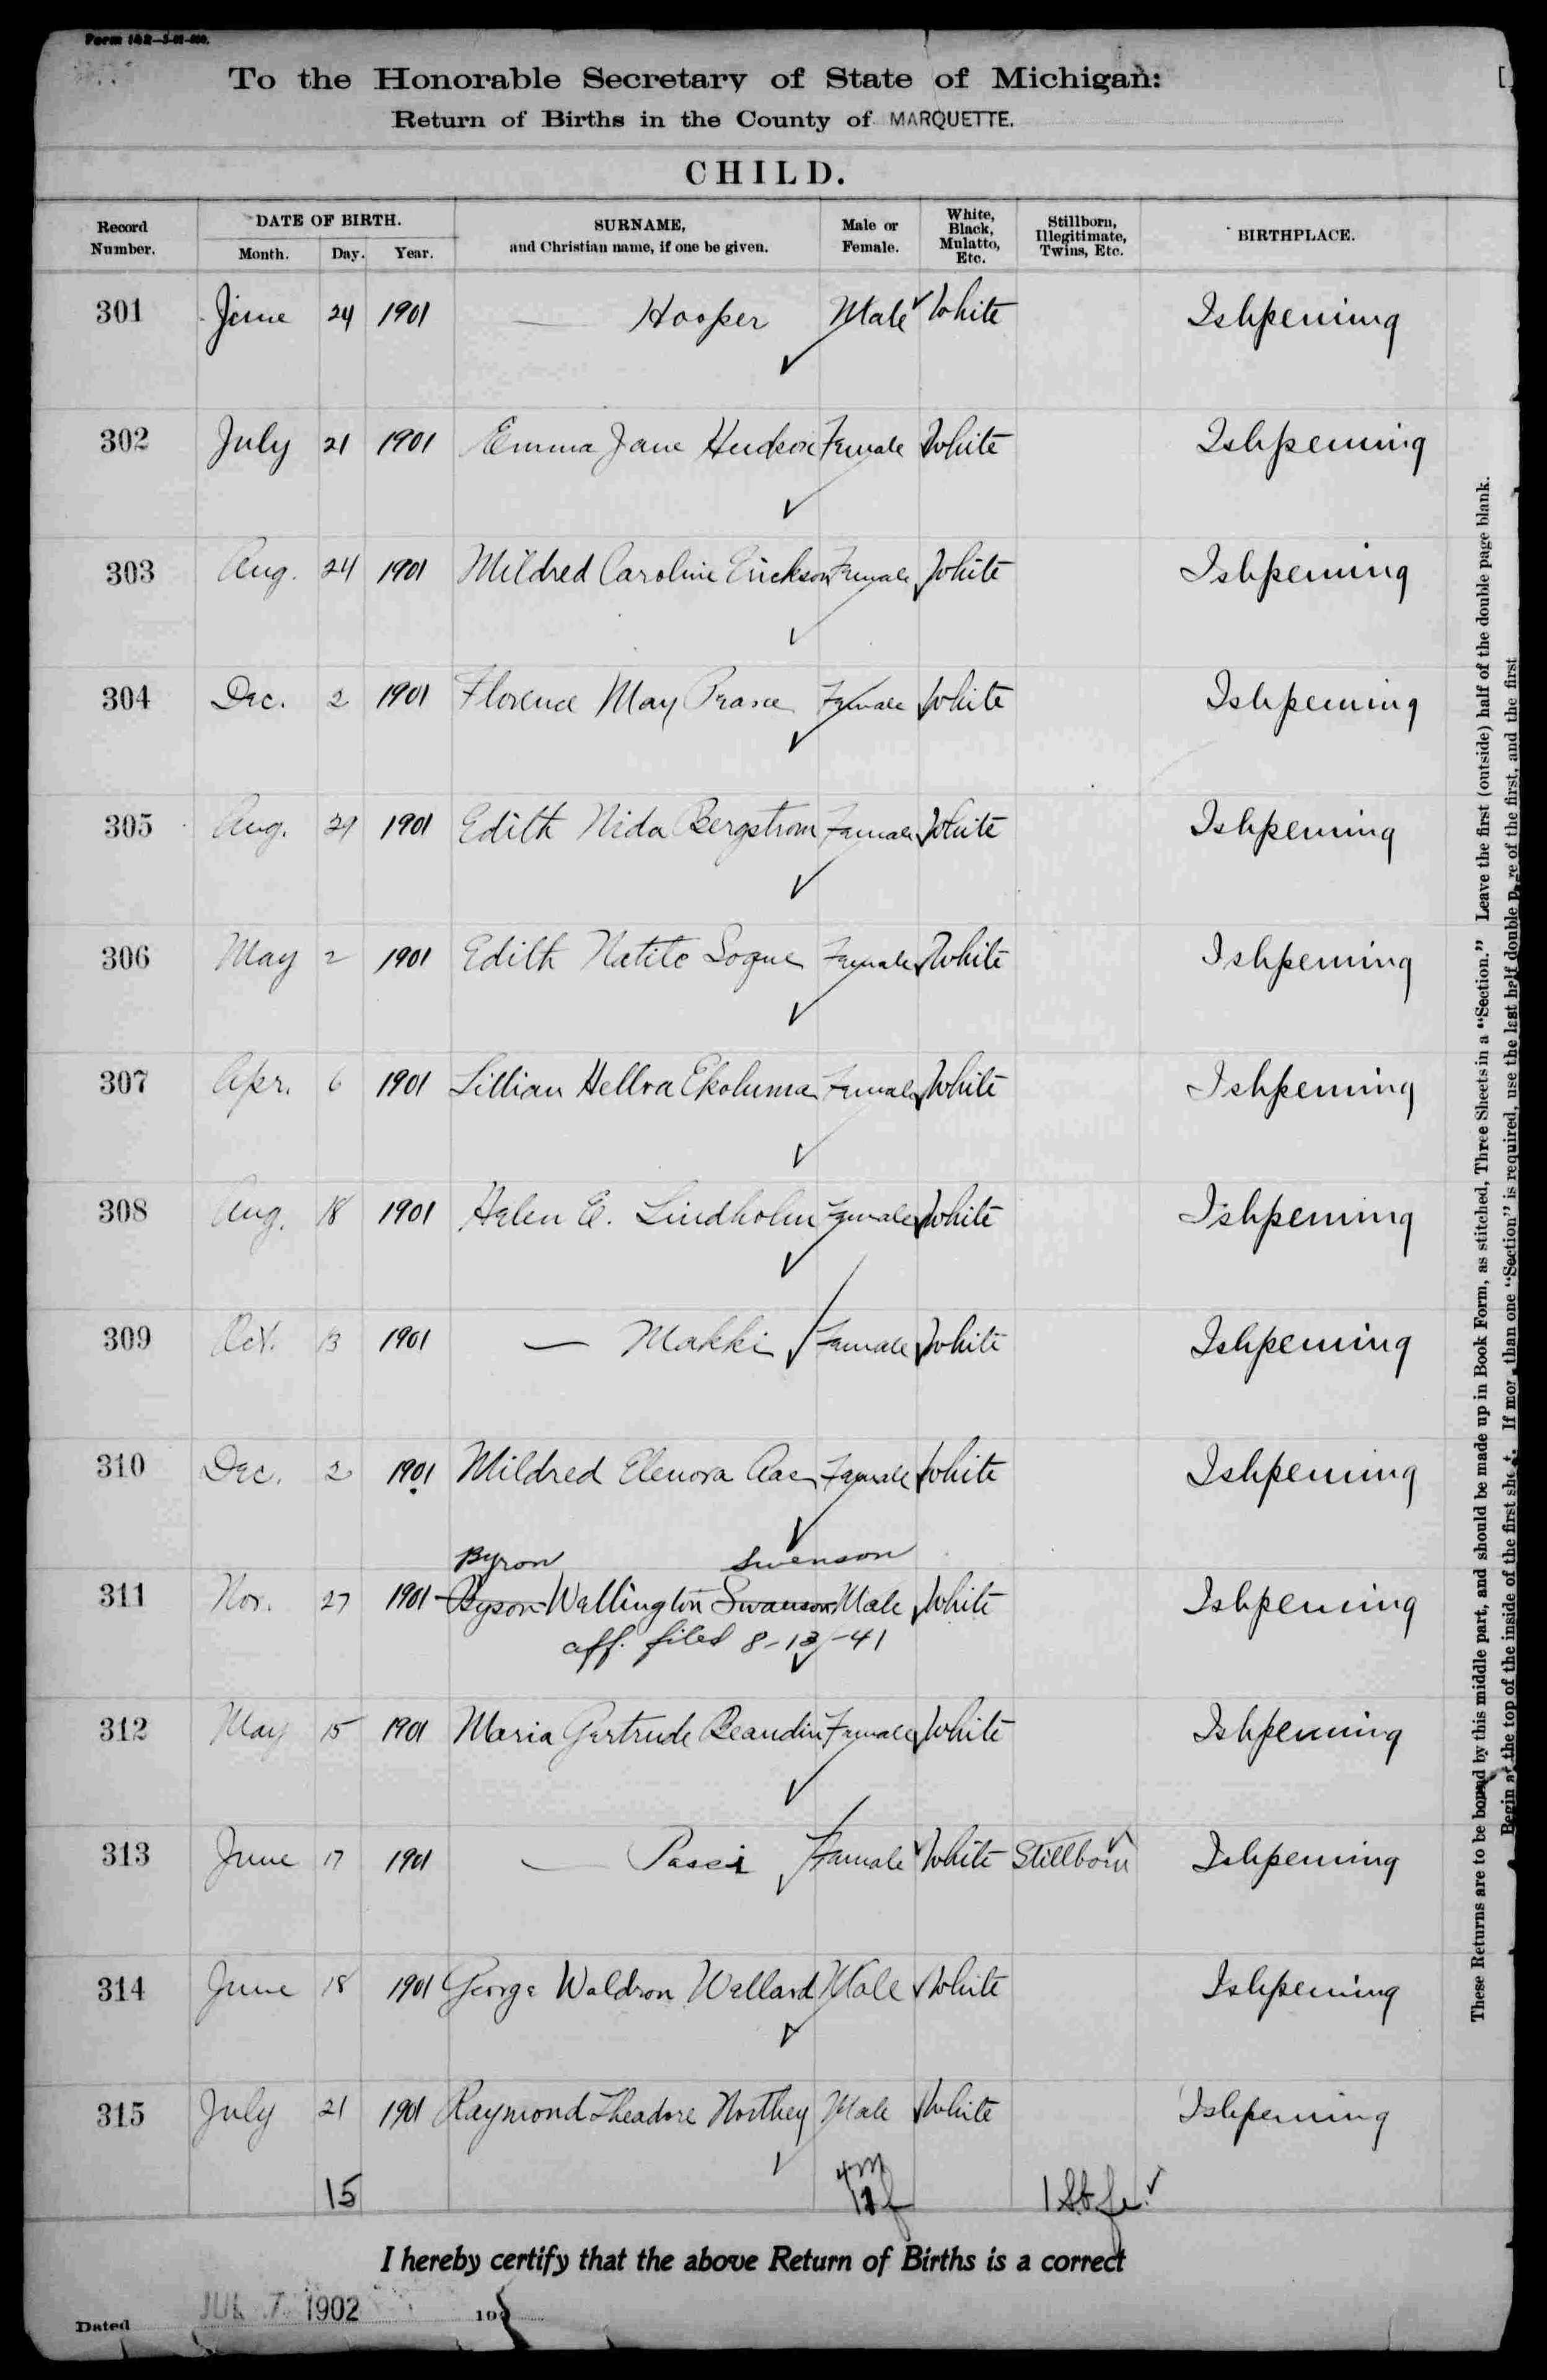 Form 142-5-01-600.
To the Honorable Secretary of State of Michigan:
Return of Births in the County of MARQUETTE.
CHILD.
Record Number. DATE OF BIRTH. Month. Day. Year. SURNAME, and Christian name, if one be given. Male or Female. White, Black, Mulatto, Etc. Stillborn, Illegitimate, Twins, Etc. BIRTHPLACE.
301 June 24 1901 — Hooper Male White Ishpeming
302 July 21 1901 Emma Jane Hudson Female White Ishpeming
303 Aug. 24 1901 Mildred Caroline Erickson Female White Ishpeming
304 Dec. 2 1901 Florence May Pearce Female White Ishpeming
305 Aug. 21 1901 Edith Nida Bergstrom Female White Ishpeming
306 May 2 1901 Edith Female White Ishpeming
307 Apr. 6 1901 Lillian Ekoluma Female White Ishpeming
308 Aug. 18 1901 Helen E. Lindholm Female White Ishpeming
309 Oct. 13 1901 — Makki Female White Ishpeming
310 Dec. 2 1901 Mildred Elenora Aas Female White Ishpeming
Byron Swenson
311 Nov. 27 1901 Byson Wellington Swanson Male White Ishpeming
aff. filed 8-13-41
312 May 15 1901 Maria Gertrude Beaudin Female White Ishpeming
313 June 17 1901 — Passi Female White Stillborn Ishpeming
314 June 18 1901 George Waldron Wellard Male White Ishpeming
315 July 21 1901 Raymond Theadore Northey Male White Ishpeming
4m
15 11f 1 St. fe.
I hereby certify that the above Return of Births is a correct
Dated JUL 7 1902 190
These Returns are to be bound by this middle part, and should be made up in Book Form, as stitched, Three Sheets in a "Section." Leave the first (outside) half of the double page blank.
Begin at the top of the inside of the first sheet. If more than one "Section" is required, use the last half double page of the first, and the first